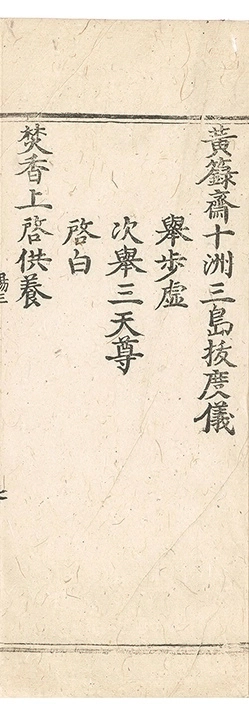 黃籙齋十洲三島拔度儀
舉步虛
次舉三天尊
啓白
焚香上啓供養